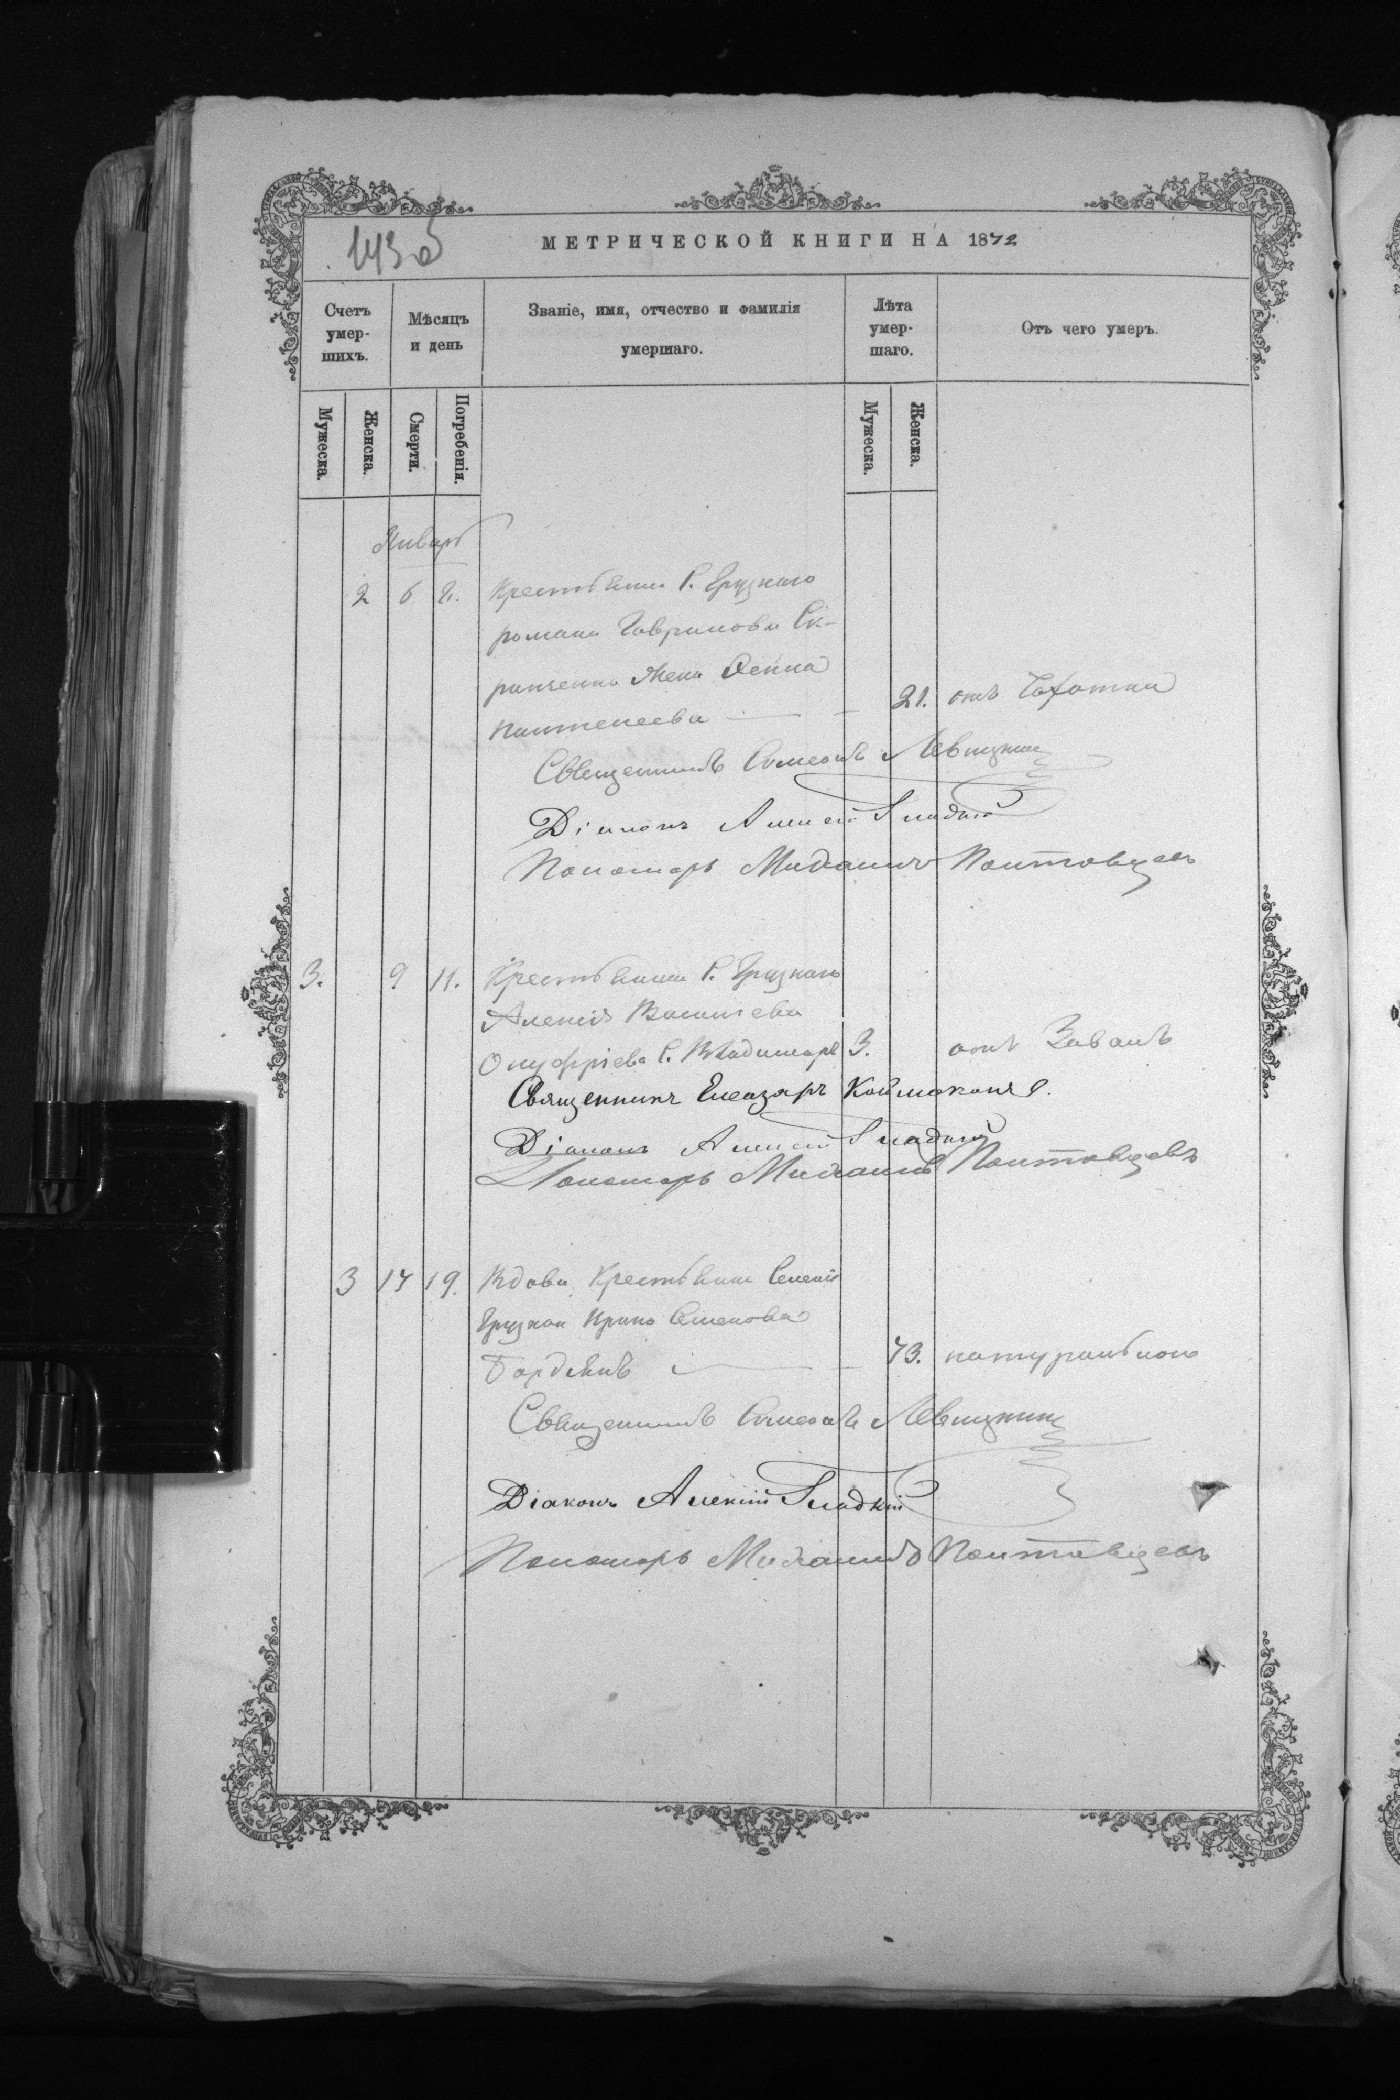 143об
МЕТРИЧЕСКОЙ КНИГИ НА 1872
Счетъ умер- шихъ.
Мѣсяцъ и день
Званіе, имя, отчество и фамилія умершаго.
Лѣта умер- шаго.
Отъ чего умеръ.
Мужеска.
Женска.
Смерти.
Погребенія.
Мужеска.
Женска.
Январь
2 6 Крестьянина С. Грузкаго
романа Гаврилова Ск-
рипченка жена
Пантелеева 21. отъ Чахотки
Священникъ Симеонъ Левицкій
Діаконъ Алексій Гладкій
Пономарь Михаилъ Полтавцевъ
3. 9 11. Крестьянина С. Грузкаго
Алексія Васильева
Онуфріева С. Владимиръ 3. отъ Завалъ
Священникъ Елеазаръ
Діаконъ Алексій Гладкій
Пономарь Михаилъ Полтавцевъ
3 17 19. Вдова Крестьянка Селенія
Грузкаго Ирина Семенова
73. натуральною
Священникъ Симеонъ Левицкій
Діаконъ Алексій Гладкій
Пономарь Михаилъ Полтавцевъ